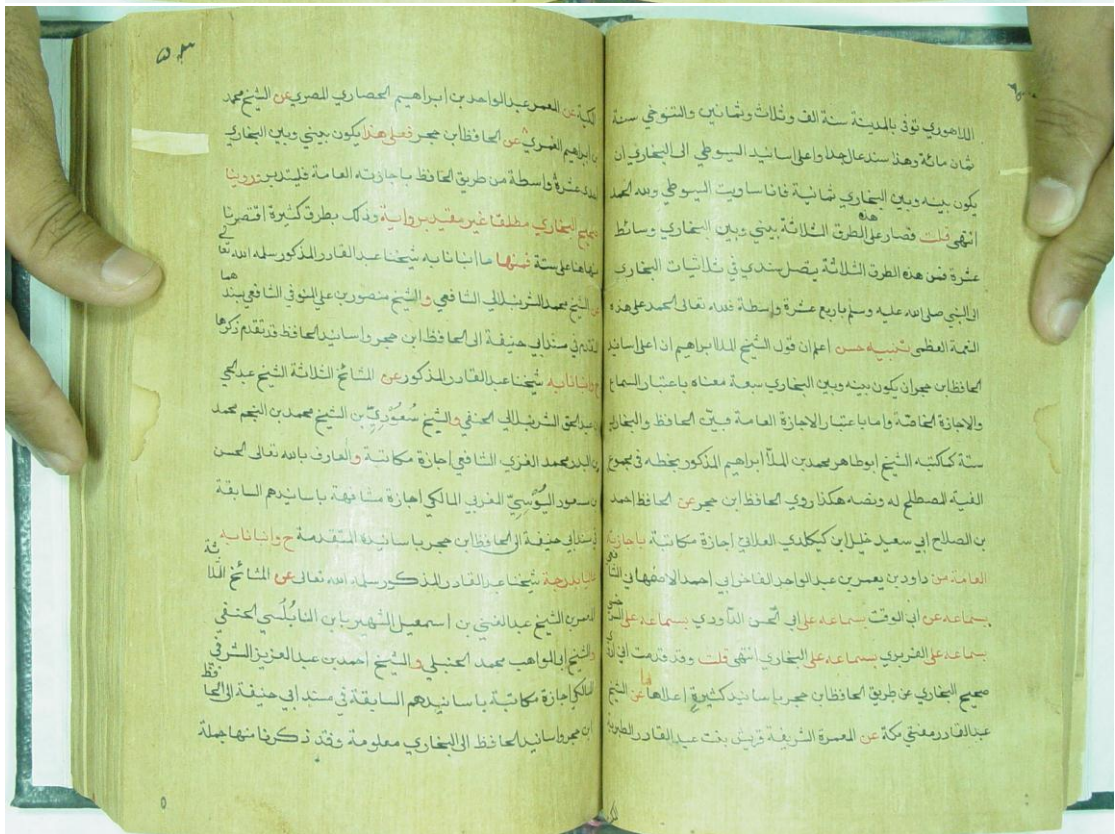 اللاهوري توفى بالمدينة سنة الف وثلاث وثمانين والتنوخي سنة
ثمان مائة وهذا سند عال جدا واعلى اسانيد السيوطي الى البخاري ان
يكون بينه وبين البخاري ثمانية فانا ساويت السيوطي ولله الحمد
انتهى قلت فصار على هذه الطرق الثلاثة بيني وبين البخاري وسائط
عشرة فمن هذه الطرق الثلاثة يتصل سندي في ثلاثيات البخاري
الى النبي صلى الله عليه وسلم باربع عشرة واسطة فلله تعالى الحمد على هذه
النعمة العظمى تنبيه حسن اعلم ان قول الشيخ الملا ابراهيم ان اعلى اسانيد
الحافظ ابن حجر ان يكون بينه وبين البخاري سبعة معناه باعتبار السماع
والاجازة الخاصة واما باعتبار الاجازة العامة فبين الحافظ والبخاري
ستة كما كتبه الشيخ ابو طاهر محمد بن الملا ابراهيم المذكور بخطه في مجموع
الفية المصطلح له ونصه هكذا روى الحافظ ابن حجر عن الحافظ احمد
بن الصلاح ابي سعيد خليل ابن كيكلدي العلائي اجازة مكاتبة باجازته
العامة من داود بن يعمر بن عبد الواحد الفاخر ابي احمد الاصفهاني
بسماعه عن ابي الوقت بسماعه على ابي الحسن الداودي بسماعه على السرخسي
بسماعه على الفربري بسماعه على البخاري انتهى قلت وقد قدمت اني
صحيح البخاري عن طريق الحافظ ابن حجر باسانيد كثيرة اعلاها عن الشيخ
عبد القادر مفتي مكة عن المعمرة الشريفة قريش بنت عبد القادر الطبرية
المكية عن المعمر عبد الواحد بن ابراهيم الحصاري المصري عن الشيخ محمد
بن ابراهيم الغمري عن الحافظ ابن حجر فعلى هذا يكون بيني وبين البخاري
احدى عشرة واسطة من طريق الحافظ باجازته العامة فليتدبر
صحيح البخاري مطلقا غير مقيد برواية وذلك بطرق كثيرة اقتصرنا
منها هنا على ستة فمنها ما انبانا به شيخنا عبد القادر المذكور سلمه الله تعالى
عن الشيخ محمد الشرنبلالي الشافعي والشيخ منصور بن علي المنوفي الشافعي
في مسند ابي حنيفة الى الحافظ ابن حجر واسانيد الحافظ قد تقدم ذكرها
ح وانبانا به شيخنا عبد القادر المذكور عن المشائخ الثلاثة الشيخ عبد الحي
بن عبد الحق الشرنبلالي الحنفي والشيخ سعودي بن الشيخ محمد بن النجم محمد
بن البدر محمد الغزي الشافعي اجازة مكاتبة والعارف بالله تعالى الحسن
بن مسعود اليوسي المغربي المالكي اجازة مشافهة باسانيدهم السابقة
في مسند ابي حنيفة الى الحافظ ابن حجر باسانيده المتقدمة ح وانبانا به
عاليا بدرجة شيخنا عبد القادر المذكور سلمه الله تعالى عن المشائخ الثلاثة
المعمر بن الشيخ عبد الغني بن اسمعيل الشهير بابن النابلسي الحنفي
والشيخ ابي المواهب محمد الحنبلي والشيخ احمد بن عبد العزيز الشرفي
المالكي اجازة مكاتبة باسانيدهم السابقة في مسند ابي حنيفة الى الحافظ
ابن حجر واسانيد الحافظ الى البخاري معلومة وقد ذكرنا منها جملة